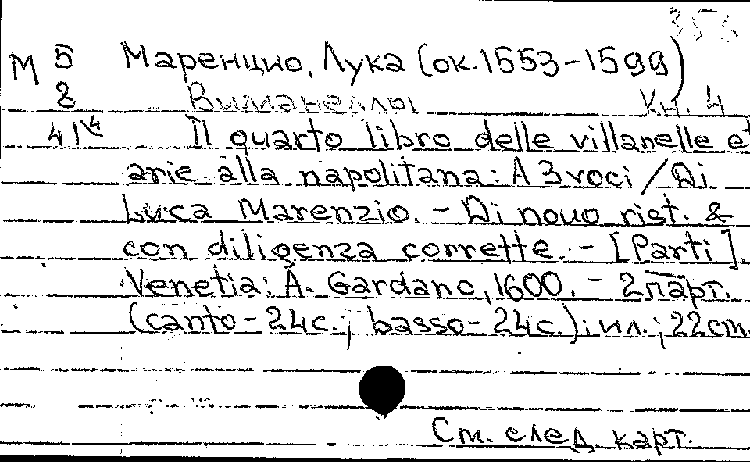 353
М 5 Маренцио, Лука (ок. 1553-1599)
2 Виланеллы Кн. 4
41 Il quarto libro delle villanelle e
arie alla napolitana: A 3 voci / Di
Luca Marenzio. - Di novo rist. &
con diligenza corrette. - [Parti].
Venetia: A. Gardano, 1600. - 2 парт.
(canto - 24 с.; basso - 24 с.): ил.; 22 cm.
См. след. карт.